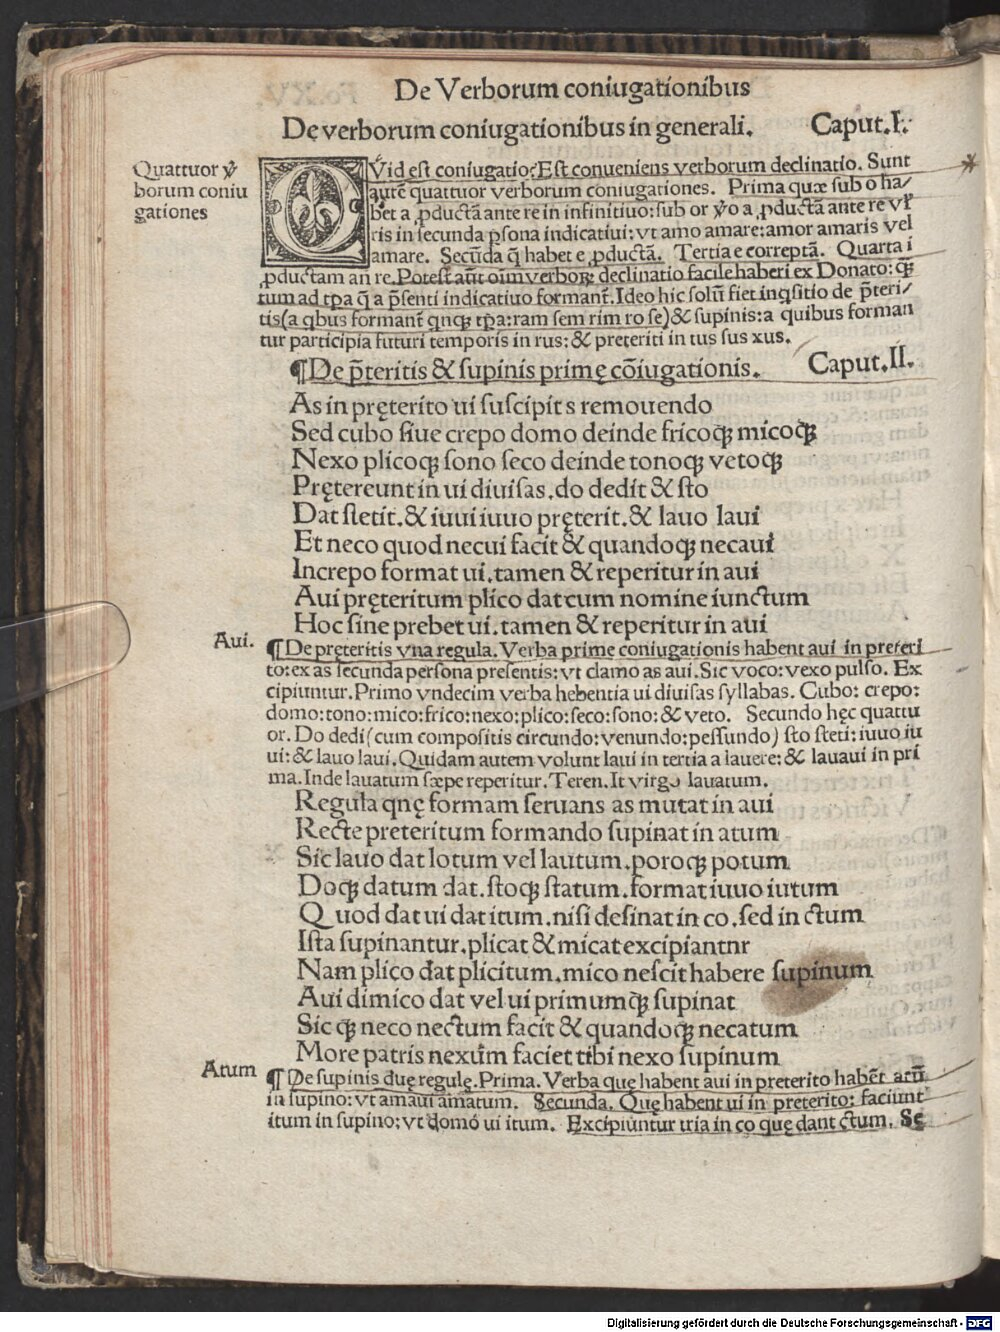 De Verborum coniugationibus
De verborum coniugationibus in generali. Caput.I.
Quattuor v̉
borum coniu
gationes
QVid est coniugatio? Est conueniens verborum declinatio. Sunt
autē quattuor verborum coniugationes. Prima quæ sub o ha/
bet a ꝓductā ante re in infinitiuo: sub or v̉o a ꝓductā ante re vł
ris in secunda p̱sona indicatiui: vt amo amare: amor amaris vel
amare. Secūda q̄ habet e ꝓductā. Tertia e correptā. Quarta i
ꝓductam an re. Potest aūt oīm verboꝝ declinatio facile haberi ex Donato: q̄ꝫ
tum ad tp̄a q̄ a p̄senti indicatiuo formant̄. Ideo hic solū fiet inq̇sitio de p̄teri/
tis (a qbus formant̄ qnqꝫ tp̄a: ram sem rim ro se) & supinis: a quibus forman
tur participia futuri temporis in rus: & preteriti in tus sus xus.
¶De p̄teritis & supinis primę cōiugationis. Caput.II.
As in pręterito ui suscipit s remouendo
Sed cubo siue crepo domo deinde fricoqꝫ micoqꝫ
Nexo plicoqꝫ sono seco deinde tonoqꝫ vetoqꝫ
Prętereunt in ui diuisas. do dedit & sto
Dat stetit. & iuui iuuo pręterit. & lauo laui
Et neco quod necui facit & quandoqꝫ necaui
Increpo format ui. tamen & reperitur in aui
Aui pręteritum plico dat cum nomine iunctum
Hoc sine prebet ui. tamen & reperitur in aui
Aui.
¶De pręteritis vna regula. Verba prime coniugationis habent aui in preteri
to: ex as secunda persona presentis: vt clamo as aui. Sic voco: vexo pulso. Ex
cipiuntur. Primo vndecim verba hebentia ui diuisas syllabas. Cubo: crepo:
domo: tono: mico: frico: nexo: plico: seco: sono: & veto. Secundo hęc quattu
or. Do dedi (cum compositis circundo: venundo: pessundo) sto steti: iuuo iu
ui: & lauo laui. Quidam autem volunt laui in tertia a lauere: & lauaui in pri
ma. Inde lauatum sæpe reperitur. Teren. It virgo lauatum.
Regula qnę formam seruans as mutat in aui
Recte preteritum formando supinat in atum
Sic lauo dat lotum vel lautum. poroqꝫ potum
Doqꝫ datum dat. stoqꝫ statum. format iuuo iutum
Quod dat ui dat itum. nisi desinat in co. sed in ctum
Ista supinantur. plicat & micat excipiantnr
Nam plico dat plicitum. mico nescit habere supinum
Aui dimico dat vel ui primumqꝫ supinat
Sic qꝫ neco nectum facit & quandoqꝫ necatum
More patris nexum faciet tibi nexo supinum
Atum
¶De supinis duę regulę. Prima. Verba quę habent aui in preterito habēt atū
in supino: vt amaui amatum. Secunda. Quę habent ui in preterito: faciunt
itum in supino: vt domo ui itum. Excipiuntur tria in co quę dant ctum. Se
Digitalisierung gefördert durch die Deutsche Forschungsgemeinschaft - DFG